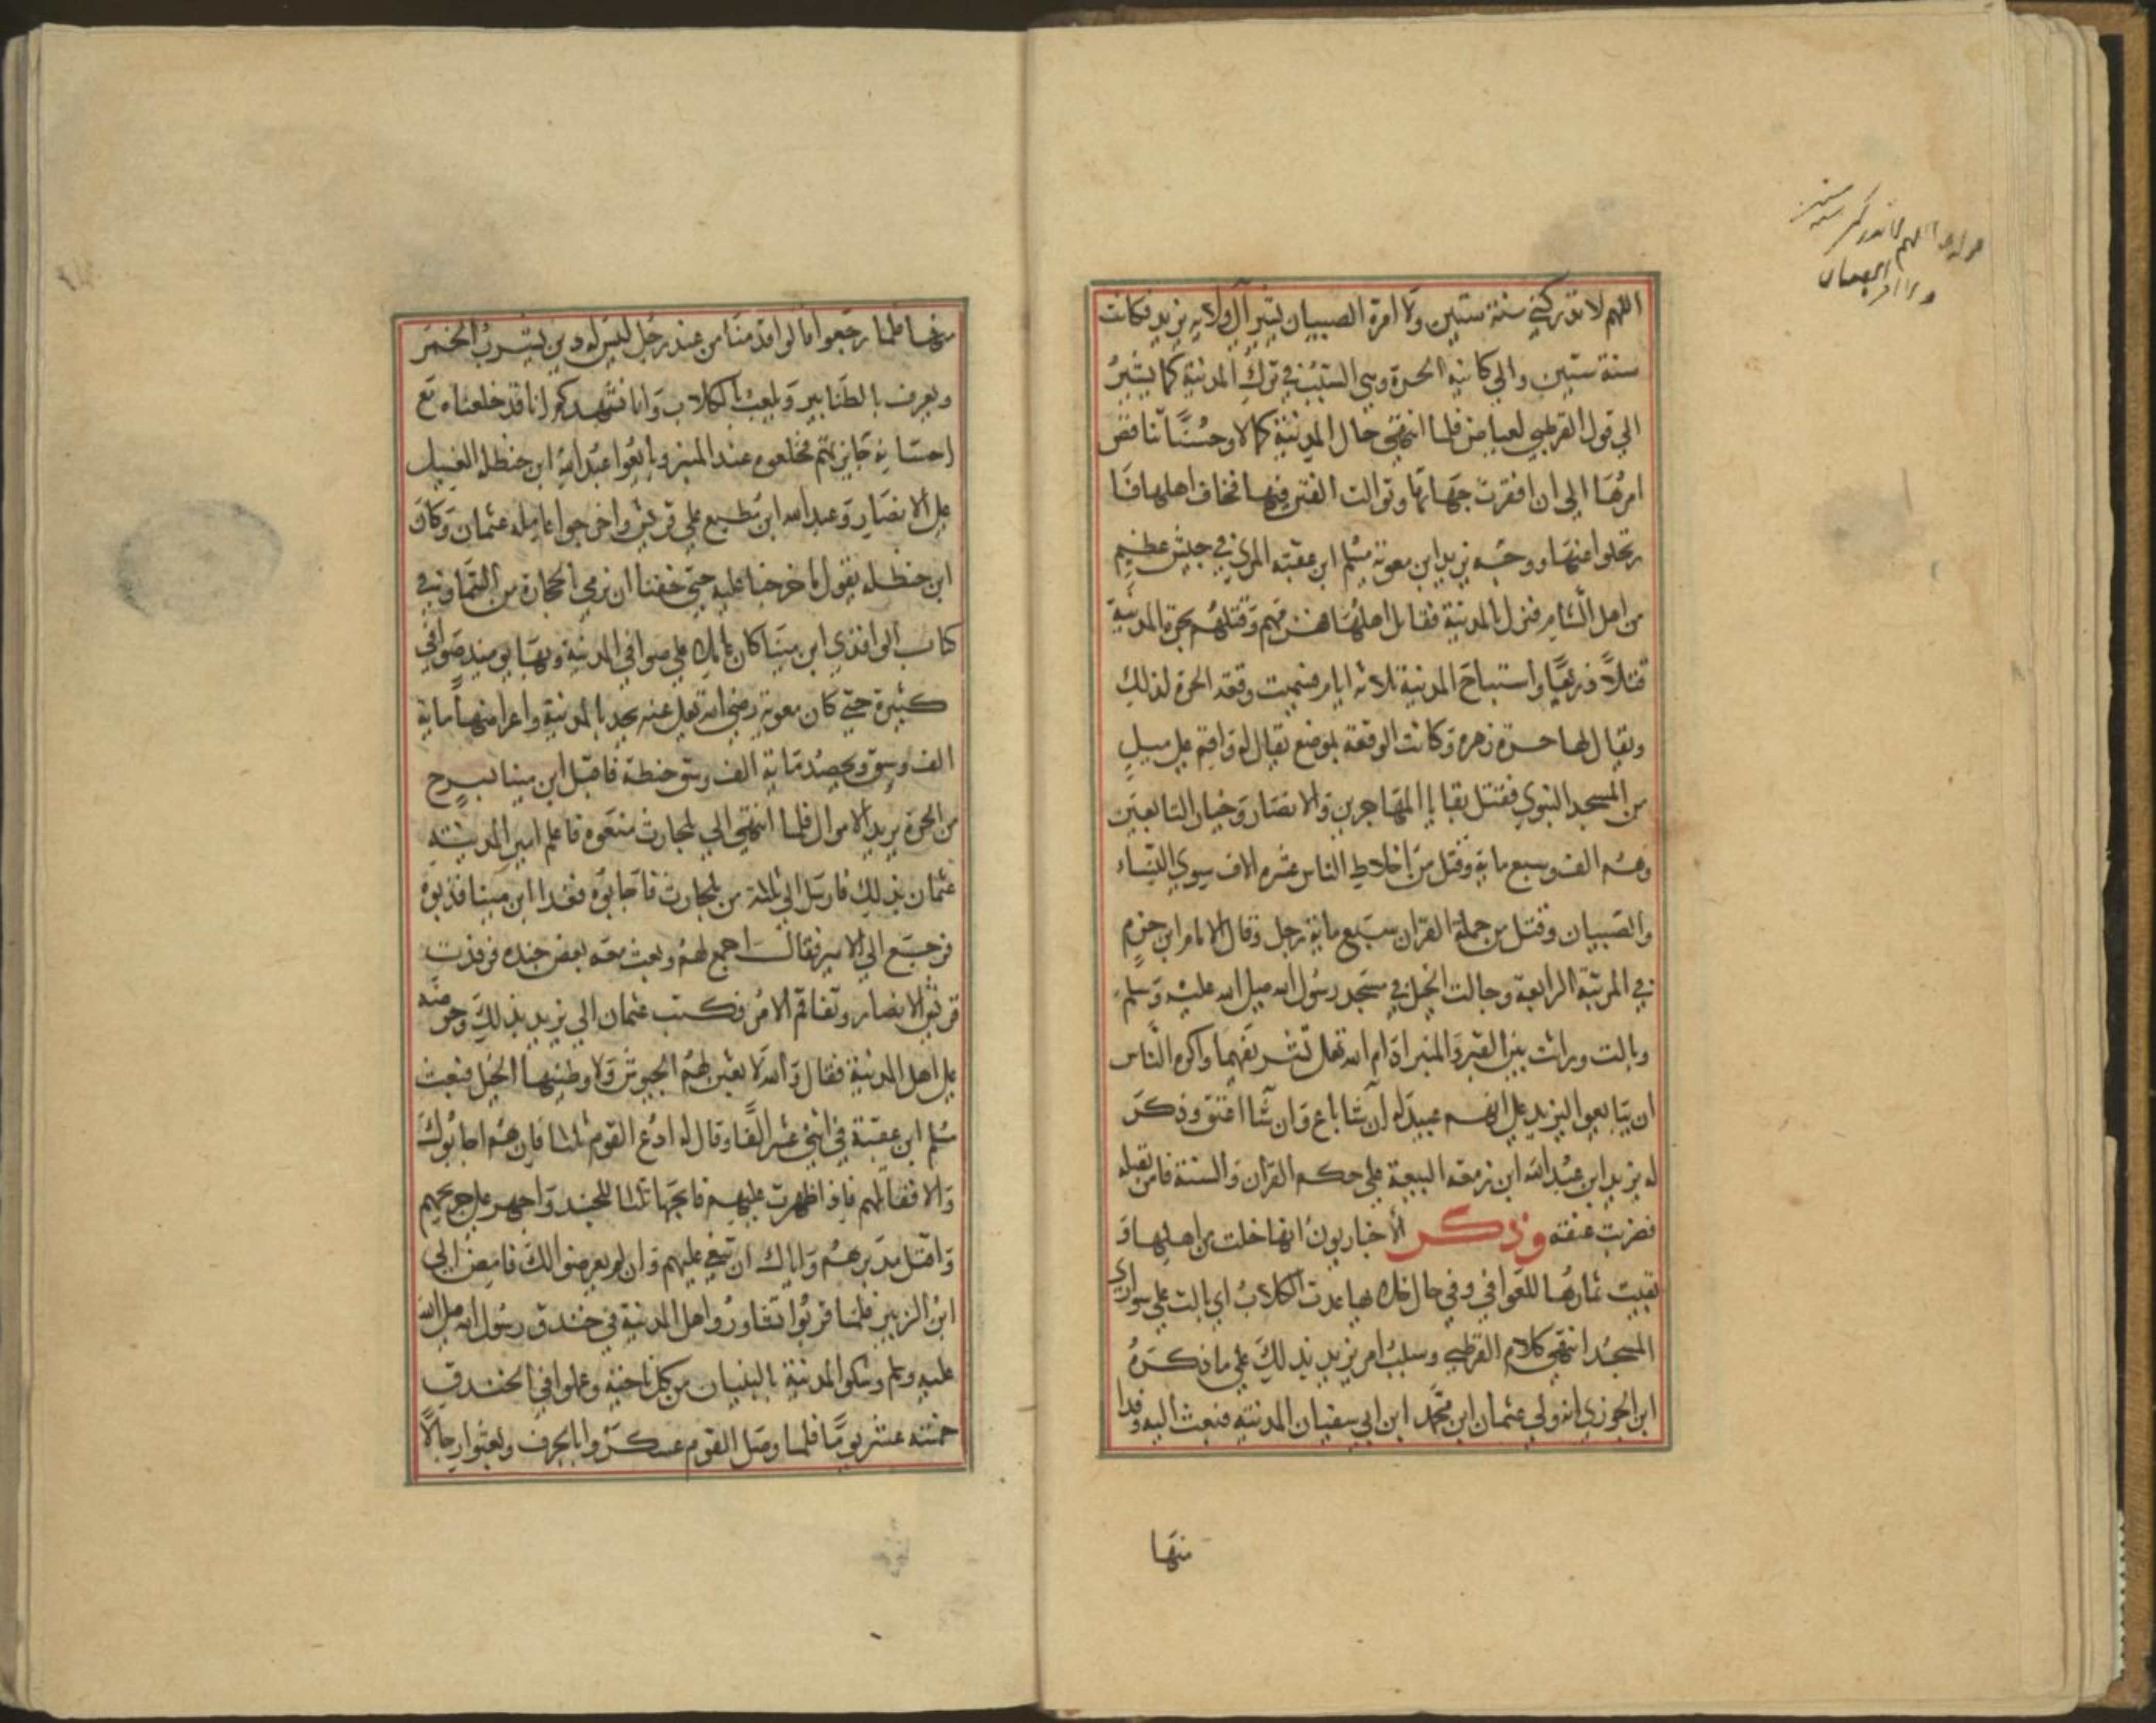 اللهم لا تدركني سنة ستين ولا امرة الصبيان يشير الى ولاية يزيد فكانت
سنة ستين والي كانيه الحرة وهي السبب في ترك المدينة كما يشير
الي قول القرطبي لعياض فلما انتهي حال المدينة كمالا وحسنا تناقص
امرها الي ان افقرت جهاتها وتوالت الفتن فيها فخاف اهلها فا
رتحلوا عنها ووجه يزيد ابن معوية مسلم ابن عقبة المري في جيش عظيم
من اهل الشام فنزل بالمدينة فقاتل اهلها فهزمهم وقتلهم بحرة المدينة
قتلاً ذريعًا واستباح المدينة ثلاثة ايام فسميت وقعة الحرة لذلك
ويقال لها حرة زهرة وكانت الوقعة بموضع يقال له واقم على ميل
من المسجد النبوي فقتل بقايا المهاجرين والانصار وخيار التابعين
وهم الف وسبع ماية وقتل من اخلاط الناس عشرة الاف سوي النساء
والصبيان وقتل من حملة القران سبع ماية رجل وقال الامام ابن حزم
في المرتبة الرابعة وجالت الخيل في مسجد رسول الله صلى الله عليه وسلم
وبالت وراثت بين القبر والمنبر ادام الله تعلى تشريفهما واكره الناس
ان يبايعوا ليزيد على انهم عبيد له ان شا باع وان شا اعتق وذكر
له يزيد ابن عبد الله ابن زمعة البيعة على حكم القران والسنة فامر بقتله
فضربت عنقه وذكر الأخباريون انها خلت من اهلها و
بقيت ثمارها للعوافي وفي حال خلائها عدت الكلاب اي بالت علي سواري
المسجد انتهي كلام القرطبي وسبب امر يزيد بذلك علي ما ذكره
ابن الجوزي انه ولي عثمان ابن محمد ابن ابي سفيان المدينة فبعث اليه وفدا
منها
منها فلما رجعوا قالوا قدمنا من عند رجل ليس له دين يشرب الخمر
ويعزف بالطنابير ويلعب بالكلاب وانا نشهدكم انا قد خلعناه مع
احسانه جايزتهم فخلعوه عند المنبر وبايعوا عبد الله ابن حنظلة الغسيل
على الانصار وعبد الله ابن مطيع علي قريش واخرجوا عامله عثمان وكان
ابن حنظلة يقول ما خرجنا عليه حتي خفنا ان نرمي بالحجارة من السما وفي
كتاب الواقدي ابن مينا كان عاملا علي صوافي المدينة وبها يوميذ صوافي
كثيرة حتي كان معوية رضي الله تعلى عنه يجد بالمدينة واعراضها ماية
الف وسق ويحصد ماية الف وسق حنطة فاقبل ابن مينا بسرح
من الحرة يريد الاموال فلما انتهي الي بلحارث منعوه فاعلم امير المدينة
عثمان بذلك فارسل الي ثلثة من بلحارث فاجابوه فغدا ابن مينا فذبوه
فرجع الي الامير فقال اجمع لهم وبعث معه بعض جنده فرفدت
قريش الانصار وتفاقم الامر فكتب عثمان الي يزيد بذلك وحرضه
على اهل المدينة فقال والله لا بعثن لهم الجيوش ولاوطينها الخيل فبعث
مسلم ابن عقبة في اثني عشر الفًا وقال له ادع القوم ثلثا فان هم اجابوك
والا فقاتلهم فاذا ظهرت عليهم فابحها ثلثا للجند واجهز على جريحهم
واقتل مدبرهم واياك ان تبقي عليهم وان لم يعرضوا لك فامض الي
ابن الزبير فلما قربوا تشاوروا اهل المدينة في خندق رسول الله صلى الله
عليه وسلم وشكوا المدينة بالبنيان من كل ناحية وعملوا في الخندق
خمسة عشر يومًا فلما وصل القوم عسكروا بالجرف وبعثوا رجالًا